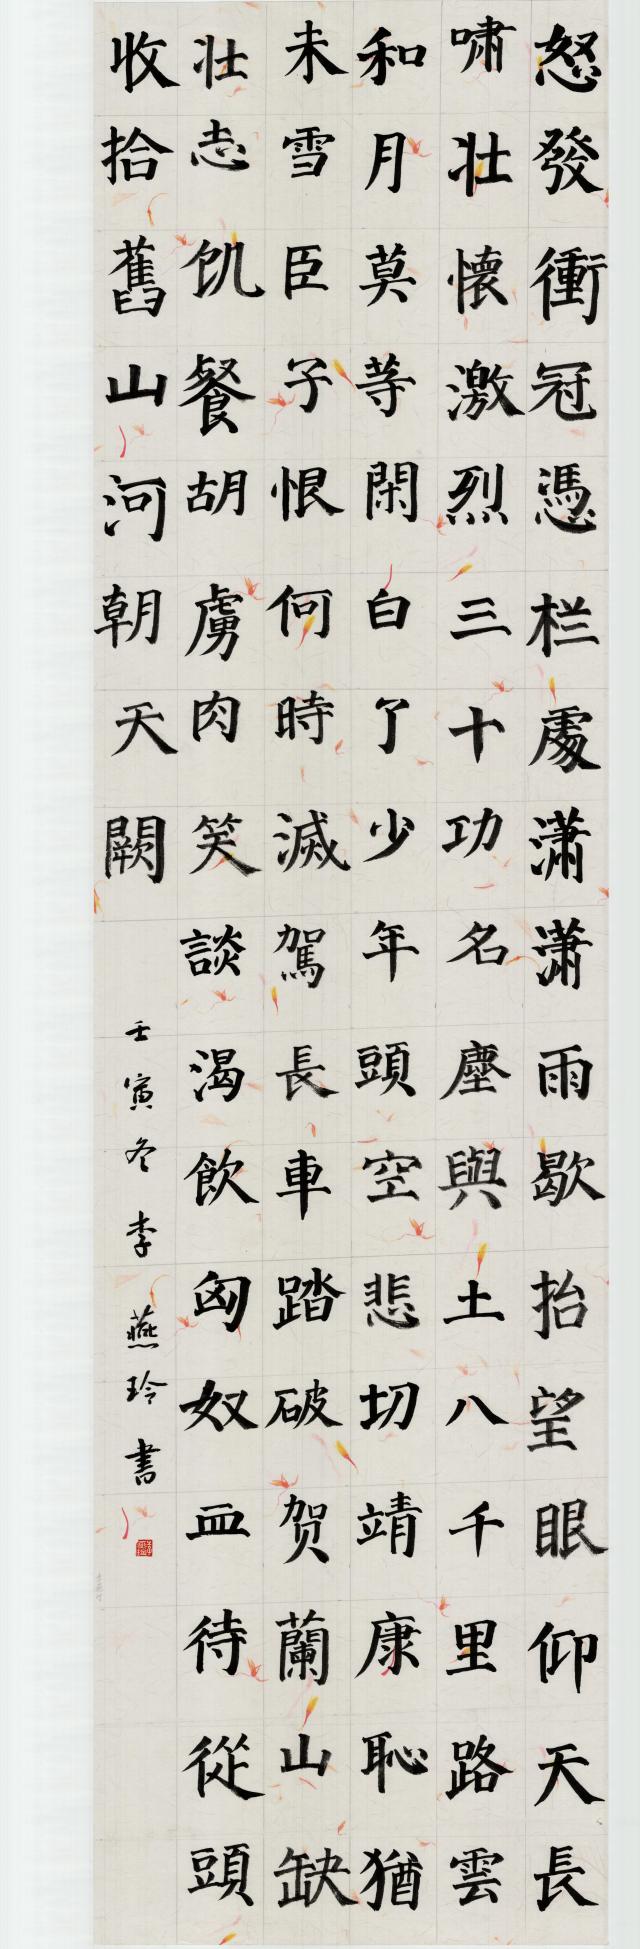 怒發衝冠憑栏處潇潇雨歇抬望眼仰天長
啸壯懷激烈三十功名塵與土八千里路雲
和月莫等閑白了少年頭空悲切靖康恥猶
未雪臣子恨何時滅駕長車踏破贺蘭山缺
壮志飢餐胡虜肉笑談渴飲匈奴血待從頭
收拾舊山河朝天闕
壬寅冬李燕玲書